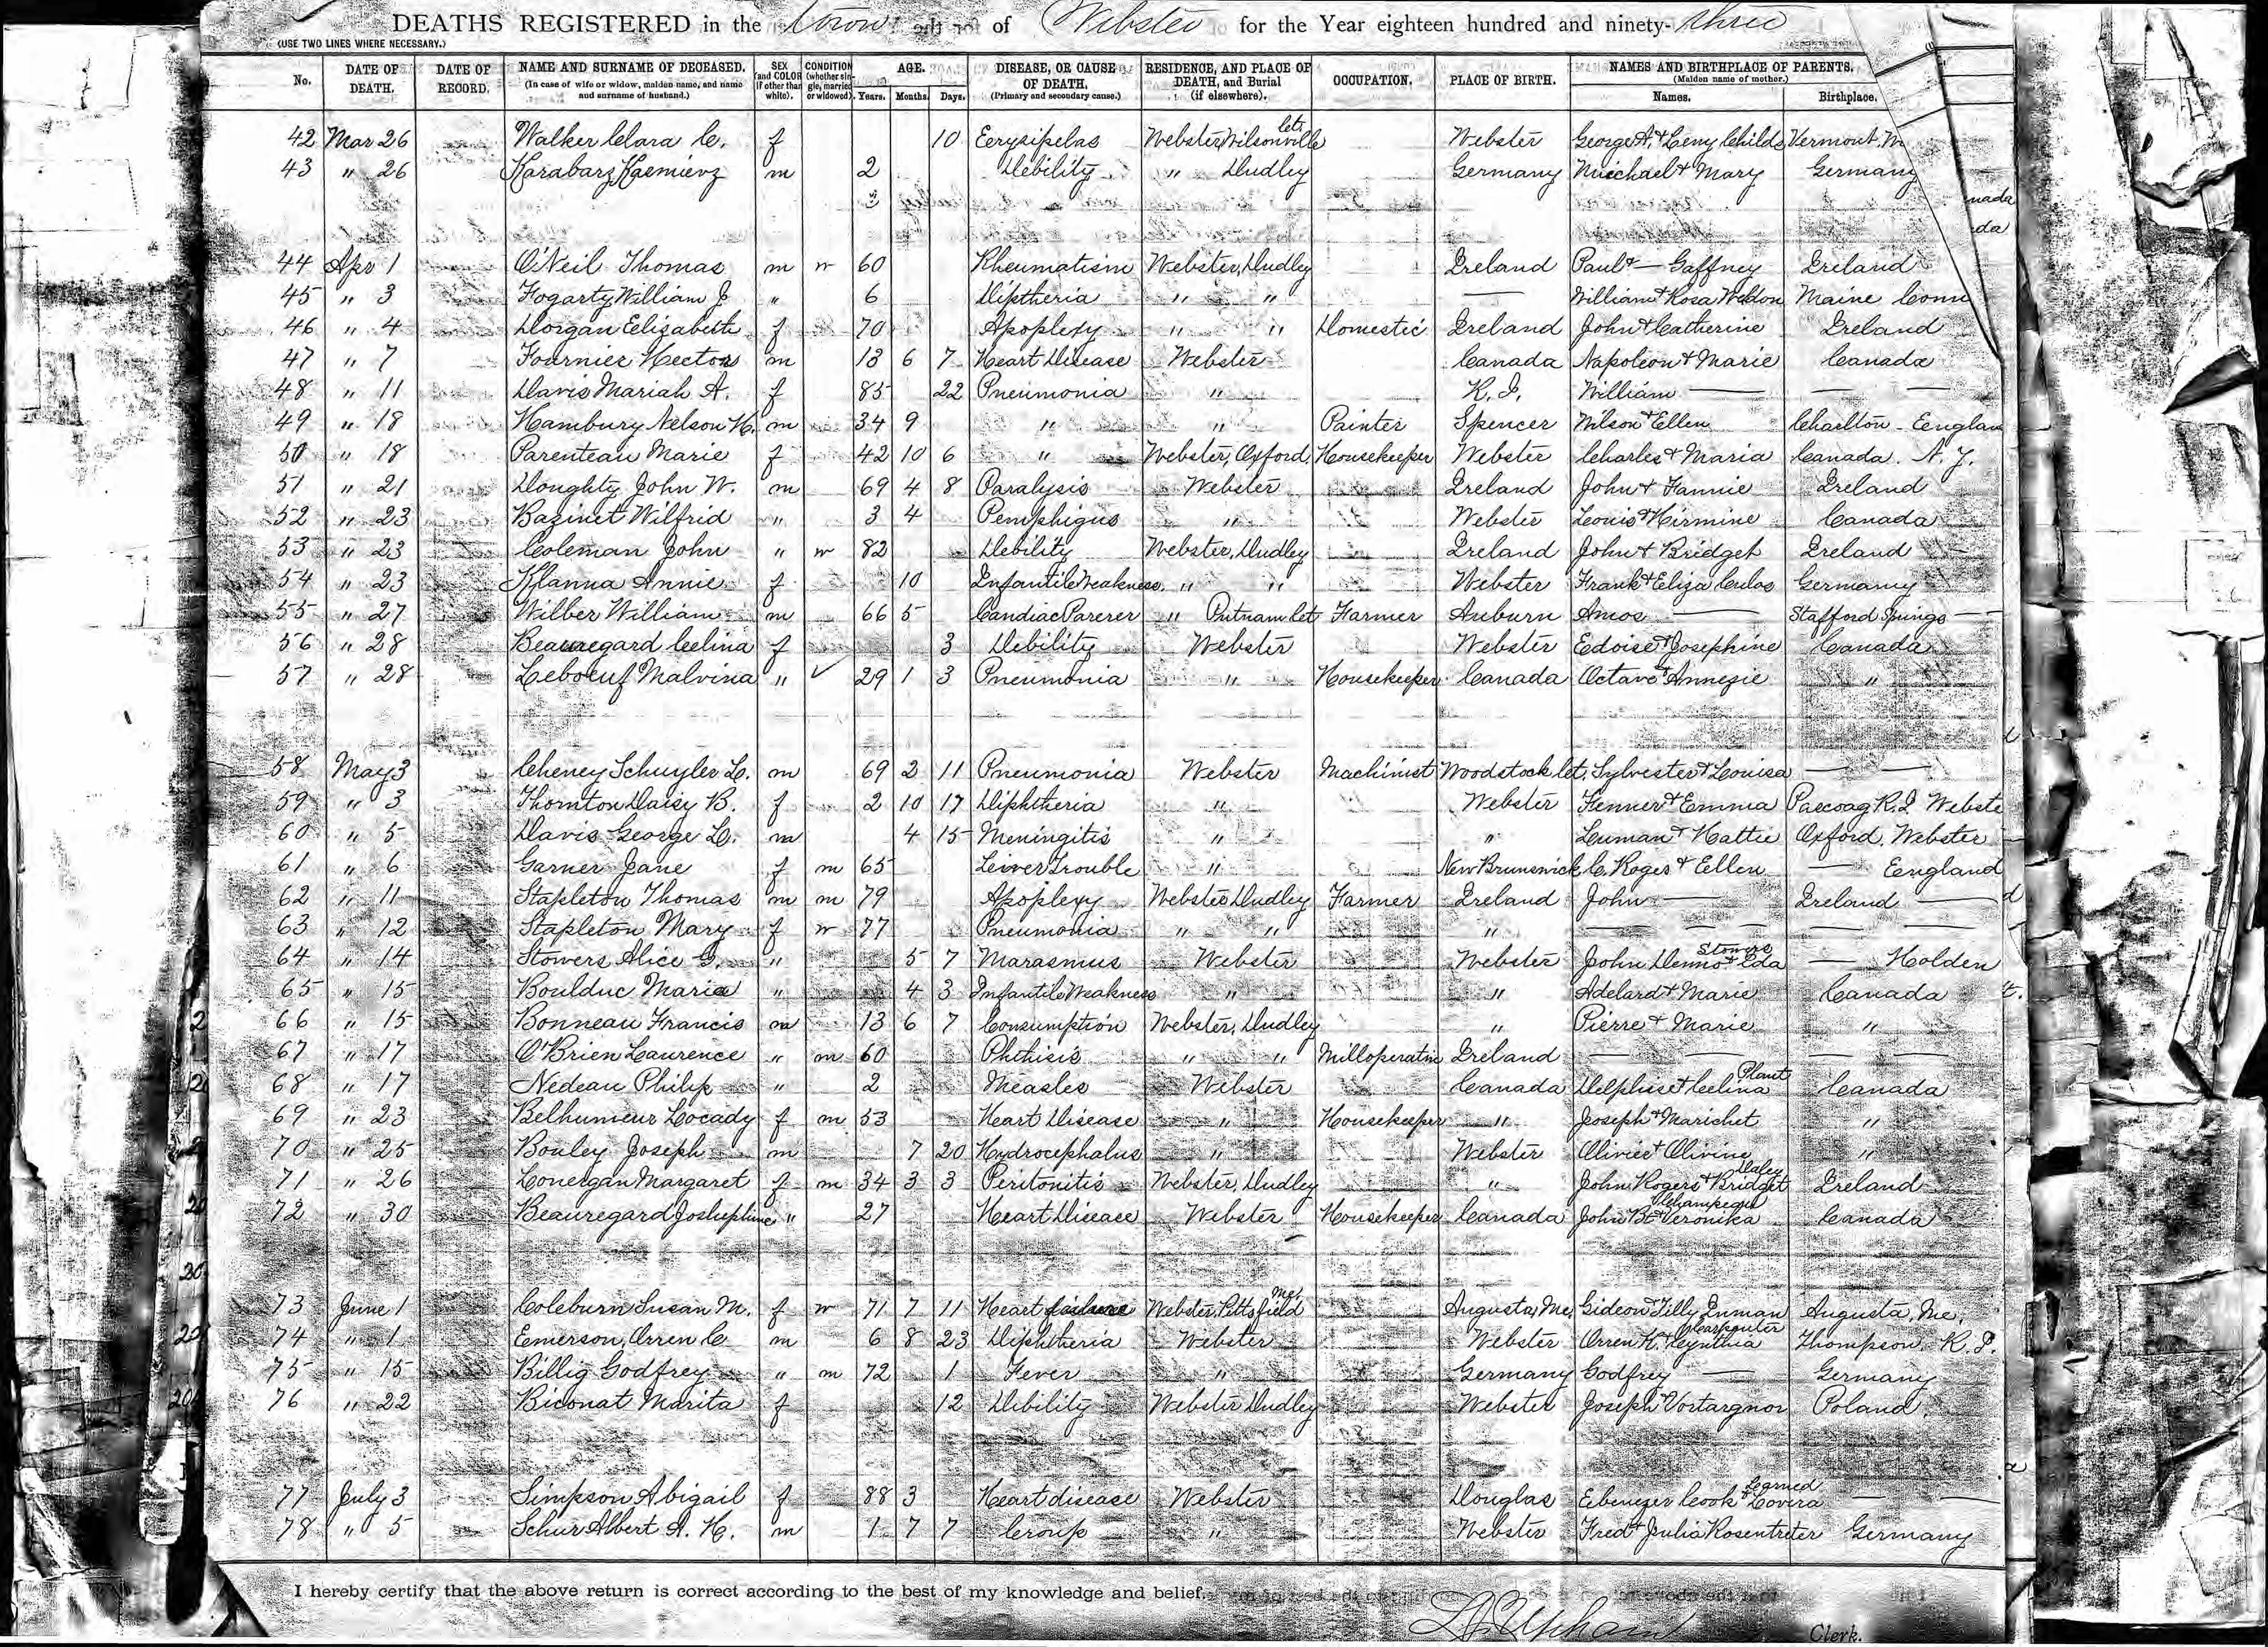 DEATHS REGISTERED in the Town of Webster for the Year eighteen hundred and ninety-three
(USE TWO LINES WHERE NECESSARY.)
No. DATE OF DEATH. DATE OF RECORD. NAME AND SURNAME OF DECEASED. (In case of wife or widow, maiden name, and name and surname of husband.) SEX (and COLOR if other than white). CONDITION (whether single, married or widowed). AGE. Years. Months. Days. DISEASE, OR CAUSE OF DEATH. (Primary and secondary cause.) RESIDENCE, AND PLACE OF DEATH, and Burial (if elsewhere). OCCUPATION. PLACE OF BIRTH. NAMES AND BIRTHPLACE OF PARENTS. (Maiden name of mother.) Names. Birthplace.
42 Mar 26 Walker Clara C. f 10 Erysipelas Webster, Wilsonville Ct. Webster George A. & Leny Childs Vermont
43 " 26 Karabarz Kaemierz m 2 Debility " Dudley Germany Michael & Mary Germany
44 Apr 1 O'Neil Thomas m w 60 Rheumatism Webster, Dudley Ireland Paul & — Gaffney Ireland
45 " 3 Fogarty William J " 6 Diptheria " " — William & Rosa Weldon Maine Conn
46 " 4 Dorgan Elizabeth f 70 Apoplexy " " Domestic Ireland John & Catherine Ireland
47 " 7 Fournier Hector m 13 6 7 Heart Disease Webster Canada Napoleon & Marie Canada
48 " 11 Davis Mariah A. f 85 22 Pneumonia " R. I. William — — —
49 " 18 Hambury Nelson H. m 34 9 " " Painter Spencer Wilson & Ellen Charlton - England
50 " 18 Parenteau Marie f 42 10 6 " Webster, Oxford Housekeeper Webster Charles & Maria Canada. N. Y.
51 " 21 Doughty John W. m 69 4 8 Paralysis Webster Ireland John & Fannie Ireland
52 " 23 Bazinet Wilfrid " 3 4 Pemphigus " Webster Louis & Hirmine Canada
53 " 23 Coleman John " w 82 Debility Webster, Dudley Ireland John & Bridget Ireland
54 " 23 Klanna Annie f 10 Infantile Weakness " " Webster Frank & Eliza Culos Germany
55 " 27 Wilber William m 66 5 " Putnam Ct Farmer Auburn Amos — Stafford Springs —
56 " 28 Beauregard Celina f 3 Debility Webster Webster Edoise & Josephine Canada
57 " 28 Leboeuf Malvina " ✓ 29 1 3 Pneumonia " Housekeeper Canada Octave & Annezie "
58 May 3 Cheney Schuyler L. m 69 2 11 Pneumonia Webster Machinist Woodstock Ct. Sylvester & Louisa — —
59 " 3 Thornton Daisy B. f 2 10 17 Diphtheria " Webster Fenner & Emma Pascoag R.I. Webste
60 " 5 Davis George L. m 4 15 Meningitis " " Luman & Hattie Oxford, Webster
61 " 6 Garner Jane f m 65 Leiver Trouble " New Brunswick C. Roges & Ellen — England
62 " 11 Stapleton Thomas m m 79 Apoplexy Webster Dudley Farmer Ireland John — Ireland —
63 " 12 Stapleton Mary f w 77 Pneumonia " " " — — — — —
64 " 14 Stowers Alice G. " 5 7 Marasmus Webster Webster John Denno & Ida Stowers — Holden
65 " 15 Boulduc Maria " 4 3 Infantile Weakness " " Adelard & Marie Canada
66 " 15 Bonneau Francis m 13 6 7 Consumption Webster, Dudley " Pierre & Marie "
67 " 17 O'Brien Laurence " m 60 Phthisis " " Milloperative Ireland — — — —
68 " 17 Nedeau Philip " 2 Measles Webster Canada Delphis & Celina Plant Canada
69 " 23 Belhumeur Locady f m 53 Heart Disease " Housekeeper " Joseph & Marichet "
70 " 25 Bouley Joseph m 7 20 Hydrocephalus " Webster Olivier & Olivine "
71 " 26 Lonergan Margaret f m 34 3 3 Peritonitis Webster, Dudley " John Rogers & Bridget Daley Ireland
72 " 30 Beauregard Joshephine " 27 Heart Disease Webster Housekeeper Canada John Bt & Veronika Canada
73 June 1 Coleburn Susan M. f w 71 7 11 Heart failure Webster, Pittsfield Me. Augusta, Me. Gideon & Tilly Inman Augusta, Me.
74 " 1 Emerson, Orren C m 6 8 23 Diphtheria Webster Webster Orren K. & Cynthia Carpenter Thompson. R. I.
75 " 15 Billig Godfrey " m 72 1 Fever " Germany Godfrey — Germany
76 " 22 Biconat Marita f 12 Debility Webster Dudley Webster Joseph & Vostargnor Poland
77 July 3 Simpson Abigail f 88 3 Heart disease Webster Douglas Ebenezer Cook & Lovira Learned — —
78 " 5 Schur Albert A. H. m 1 7 7 Croup " Webster Fred & Julia Rosentreter Germany
I hereby certify that the above return is correct according to the best of my knowledge and belief.
Upham
Clerk.